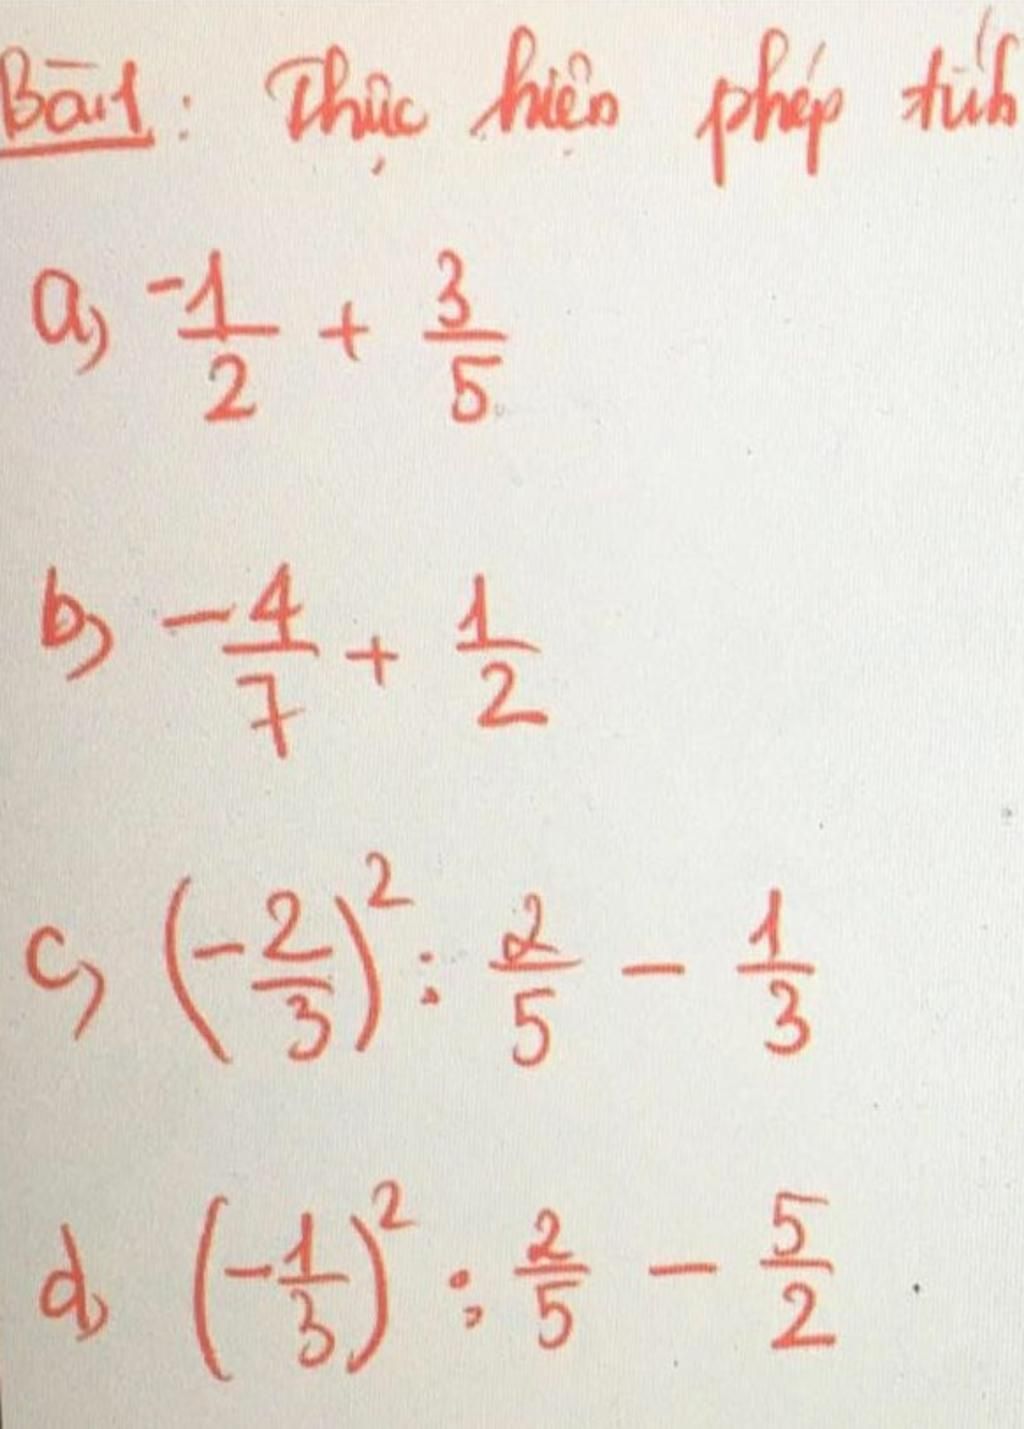 Bài 1: Thực hiện phép tính
a) -1/2 + 3/5
b) -4/7 + 1/2
c) (-2/3)² : 2/5 - 1/3
d) (-1/3)² : 2/5 - 5/2